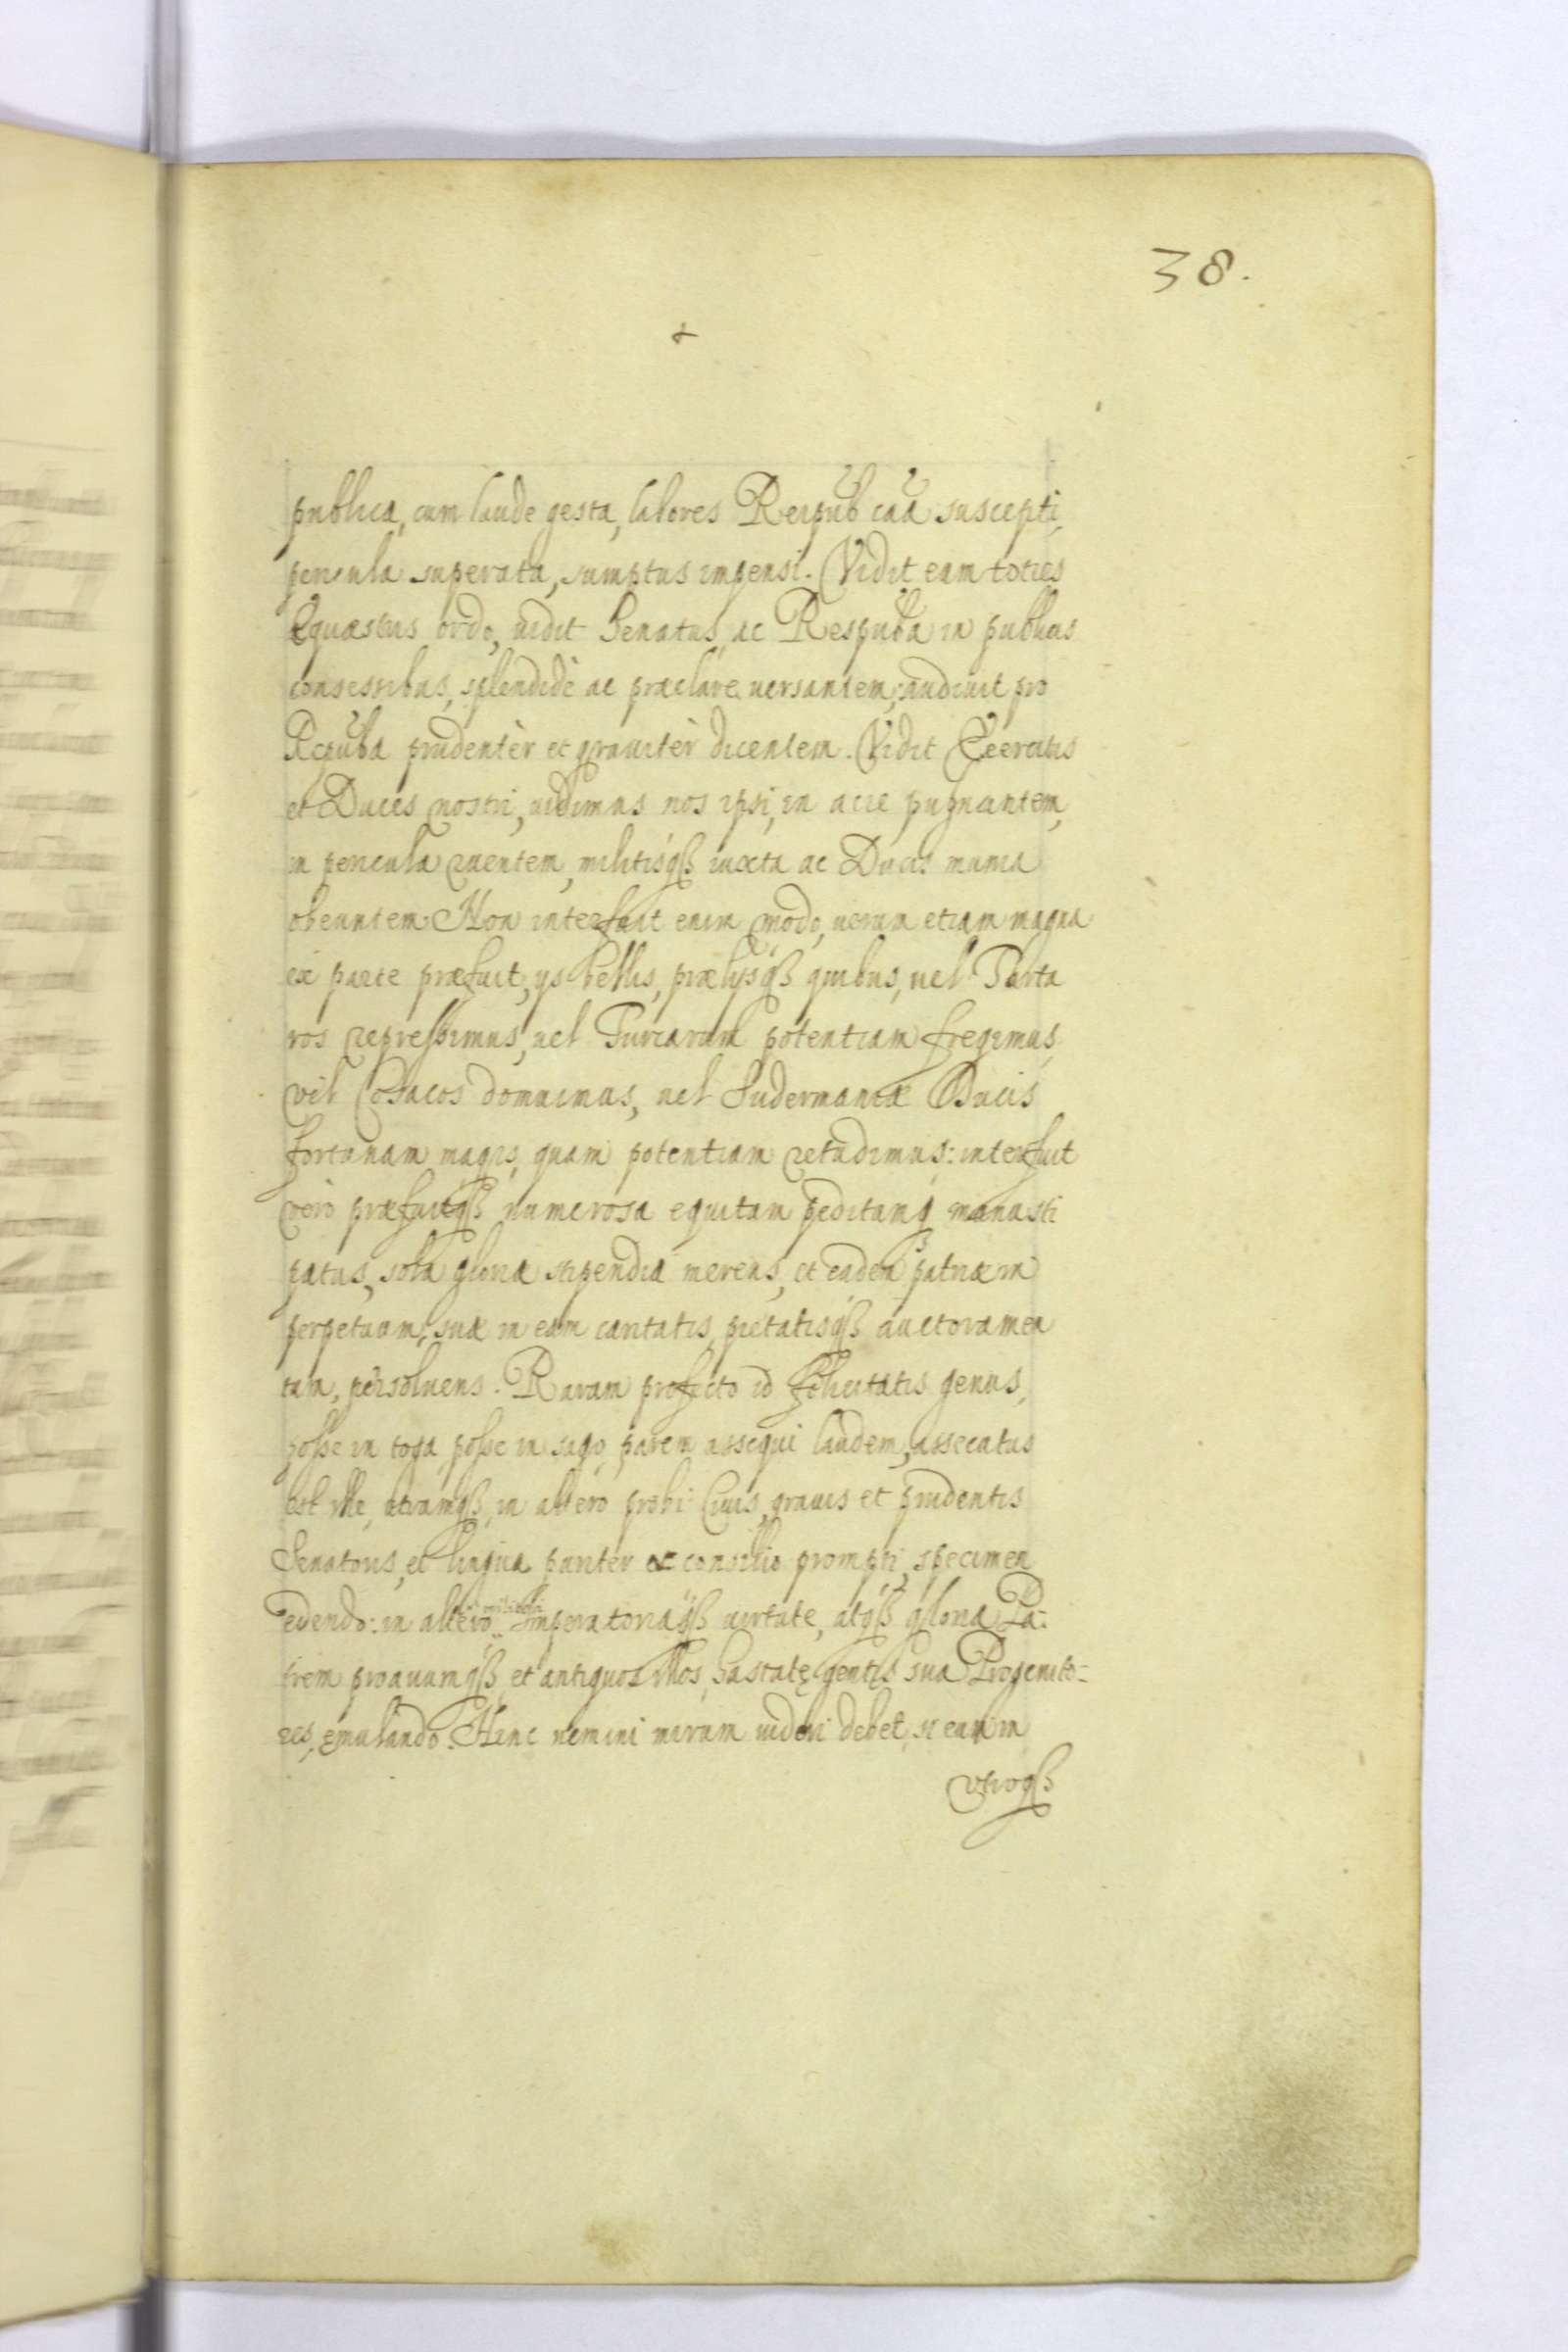 38.
+
publica, cum laude gesta, labores Reipub caâ suscepti,
pericula superata, sumptus impensi. Vidit eam toties
Equæstris ordo, uidit Senatus, ac Respuba in publicis
consessibus, splendidè ac præclare uersantem, audiuit pro
Repuba prudentèr et grauitèr dicentem. Vidit Exercitus
et Duces nostri, uidimus nos ipsi, in acie pugnantem,
in pericula ruentem, militisqß iuxta ac Ducis munia
obeuntem. Non interfuit enim modo, uerum etiam magna
ex parte præfuit, ijs bellis, prælijsqß quibus, uel Tarta
ros repreßimus, uel Turcarum potentiam fregimus,
vel Cosacos domuimus, uel Sudermaniæ Ducis
fortunam magis, quam potentiam retudimus: interfuit
vero præfuitqß numerosa equitum peditumq manu sti
patus, sola gloria stipendia merens, et eadem patriæ in
perpetuum, suæ in eam caritatis, pietatisqß auctoramen
tum, persoluens. Rarum profecto id fœlicitatis genus,
poße in toga, poße in sago, parem assequi laudem, assecutus
est ille, utramqß, in altero probi Ciuis, grauis et prudentis
Senatoris, et lingua pariter ac consilio prompti, specimen
edendo: in altero militari Imperatoriaqß uirtute, atqß gloria Pa-
trem proauumqß et antiquos illos, hastatę gentis suæ Progenito-
res, ęmulando. Hinc nemini mirum uideri debet, si eum in
vtroqß